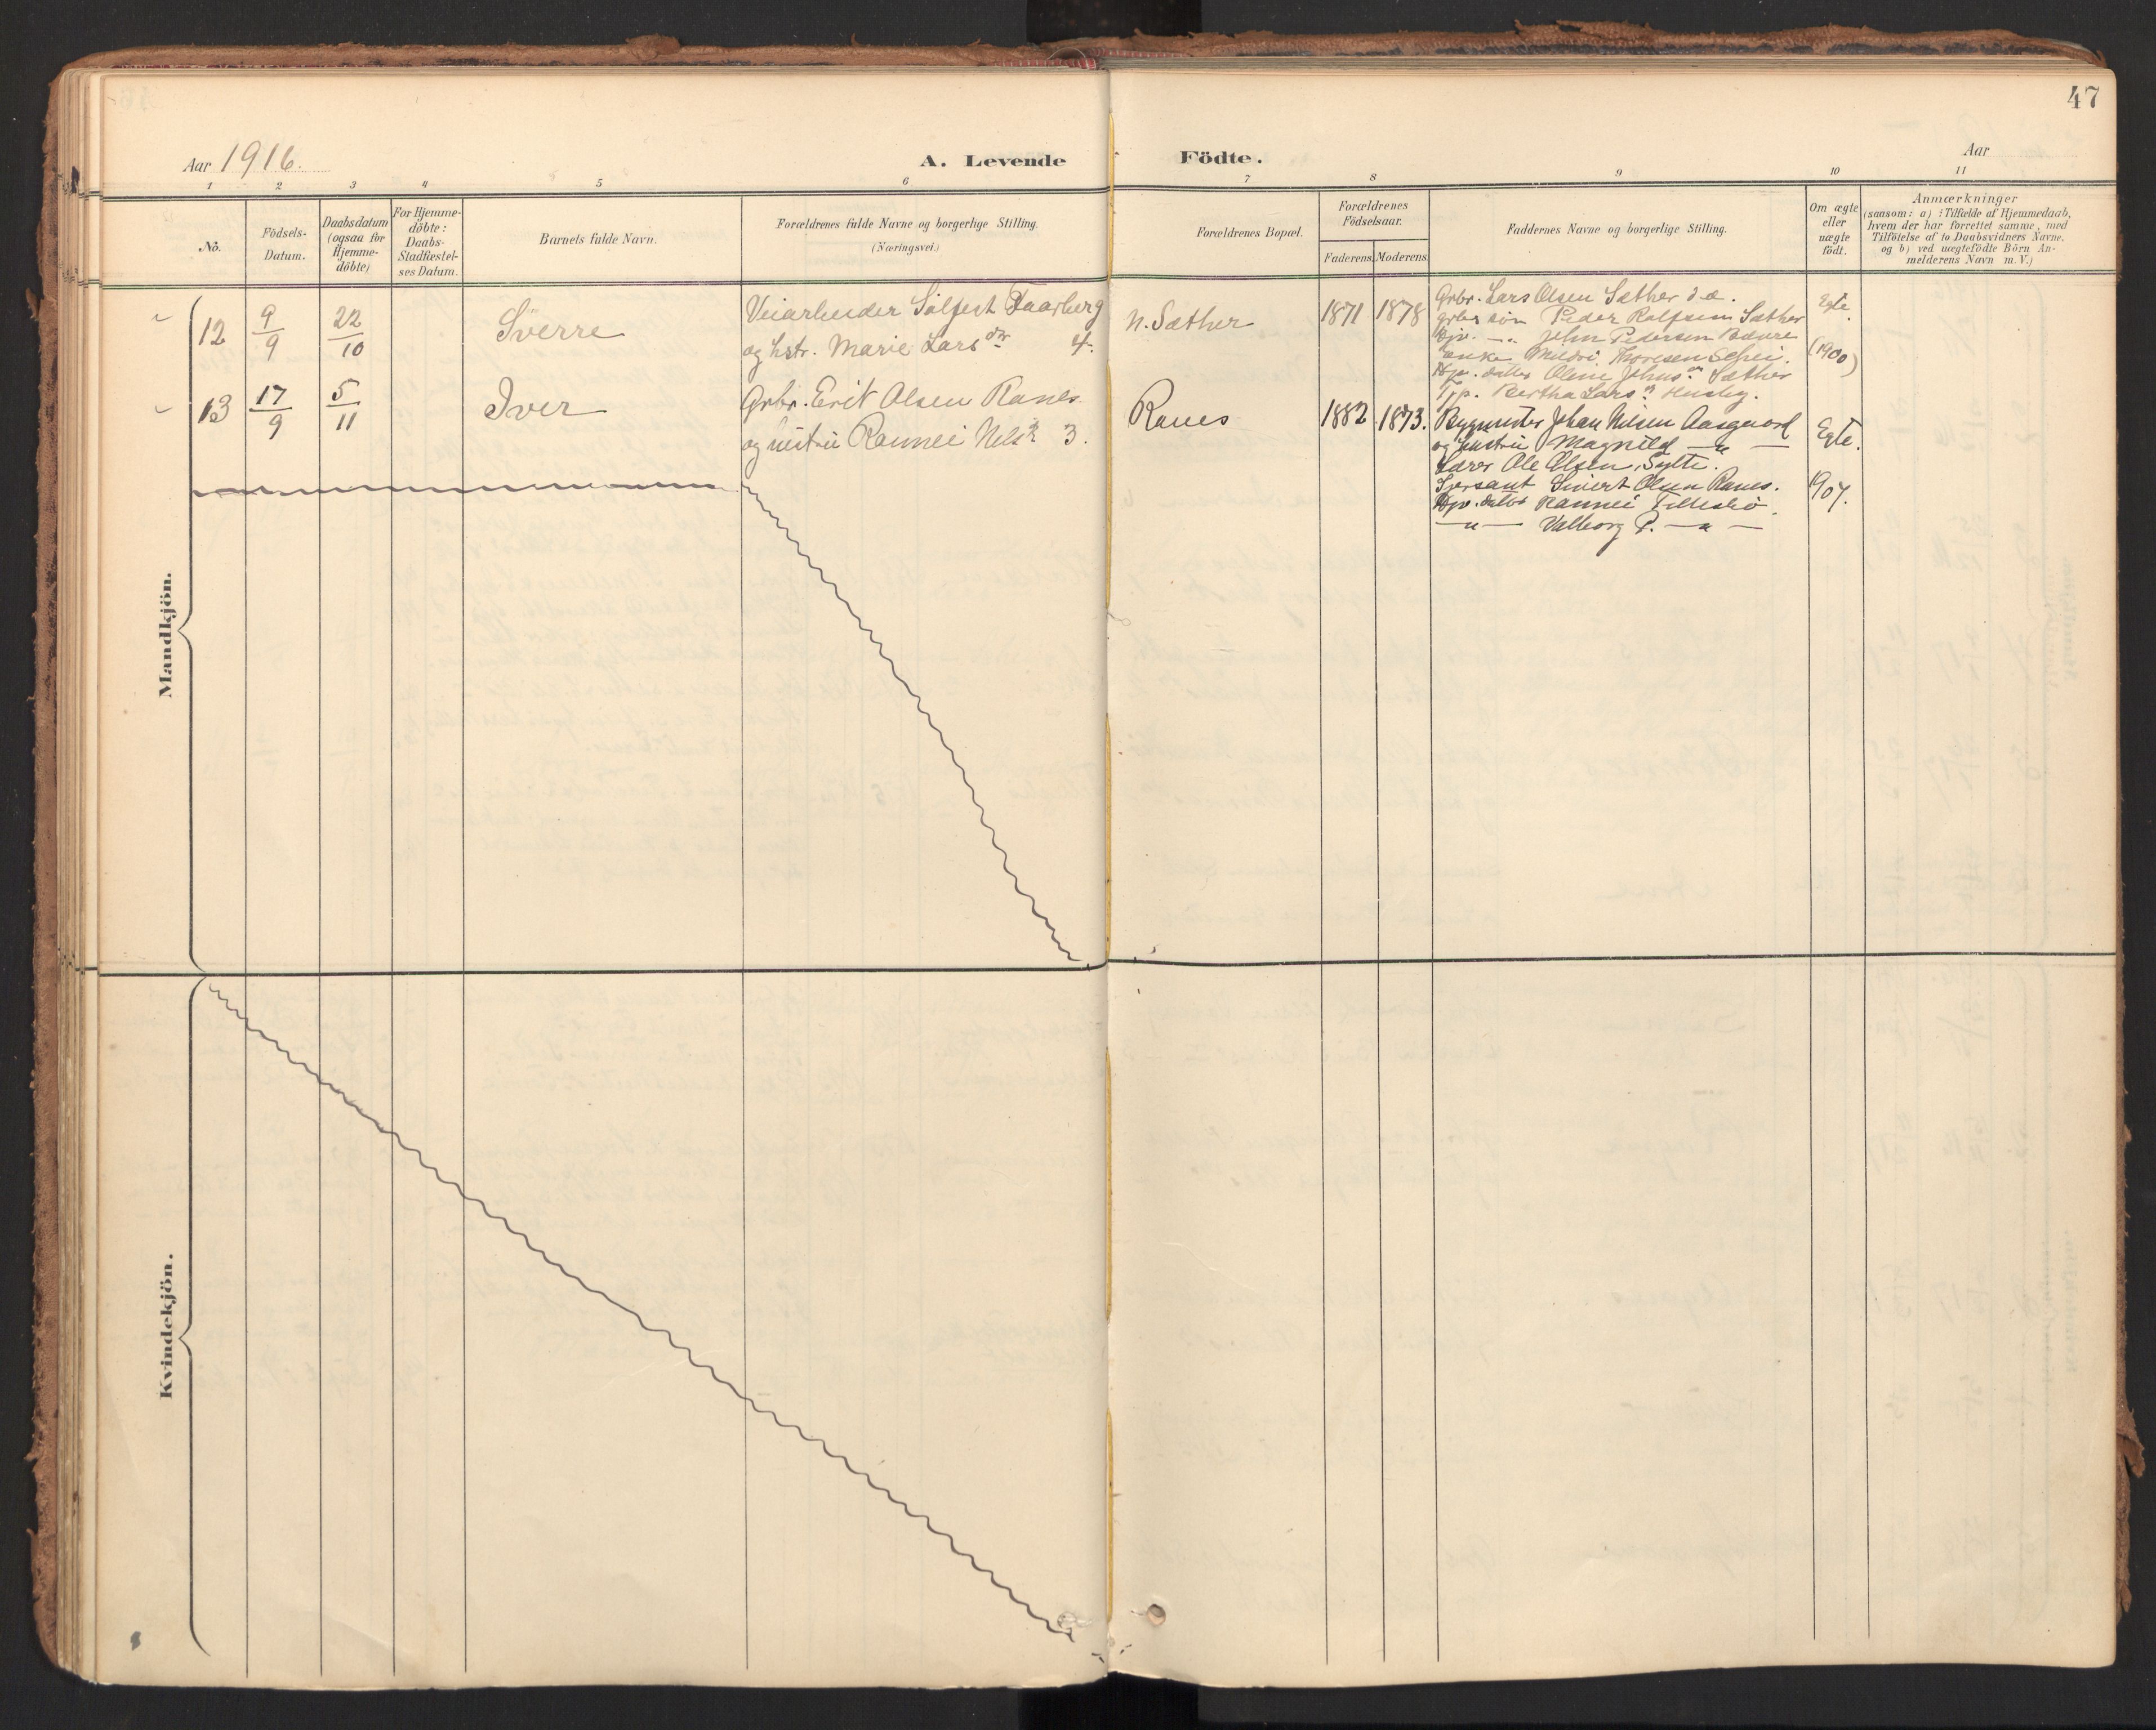 47
Aar 1916.
A. Levende Födte.
Aar
1 2 3 4 5 6 7 8 9 10 11
No.
Födsels-
Datum.
Daabsdatum
(ogsaa for
Hjemme-
döbte)
For Hjemme-
döbte:
Daabs-
Stadfæstel-
ses Datum.
Barnets fulde Navn.
Forældrenes fulde Navne og borgerlige Stilling.
(Næringsvei.)
Forældrenes Bopæl.
Forældrenes
Födselsaar.
Faderens. Moderens.
Faddernes Navne og borgerlige Stilling.
Om ægte
eller
uægte
födt.
Anmærkninger
(saasom: a) i Tilfælde af Hjemmedaab,
hvem der har forrettet samme, med
Tilföielse af to Daabsvidners Navne,
og b) ved uægtefödte Börn An-
melderens Navn m. V.)
Mandkjön.
12 9/9 22/10 Sverre
Veiarbeider Solfest Taarberg
og hstr. Marie Larsdr 4.
N. Sæther 1871 1878
Grbr. Lars Olsen Sæther d. æ.
grbrs søn Peder Rolfsen Sæther
John Pedersen
Enke Thoresen Schei.
datter Johnsdr Sæther
Bertha Larsdr Husby.
Egte.
(1900)
13 17/9 5/11 Iver
Grbr. Erik Olsen Ranes
og hustru Rannei Nilsdr 3.
Ranes 1882 1873.
Bygmester Johan Nilsen Aasgaard
og hustru Magnild — " —
Lærer Ole Olsen, Sylte.
Sersant Sivert Olsen Ranes.
datter Rannei
— " — Valborg P. — " —
Egte.
1907.
Kvindekjön.